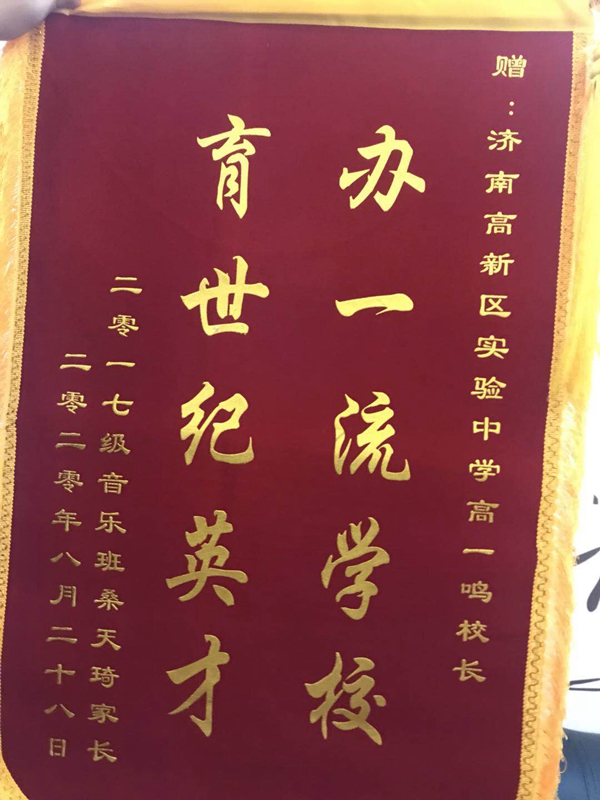 赠：济南高新区实验中学高一鸣校长
办一流学校
育世纪英才
二零一七级音乐班桑天琦家长
二零二零年八月二十八日